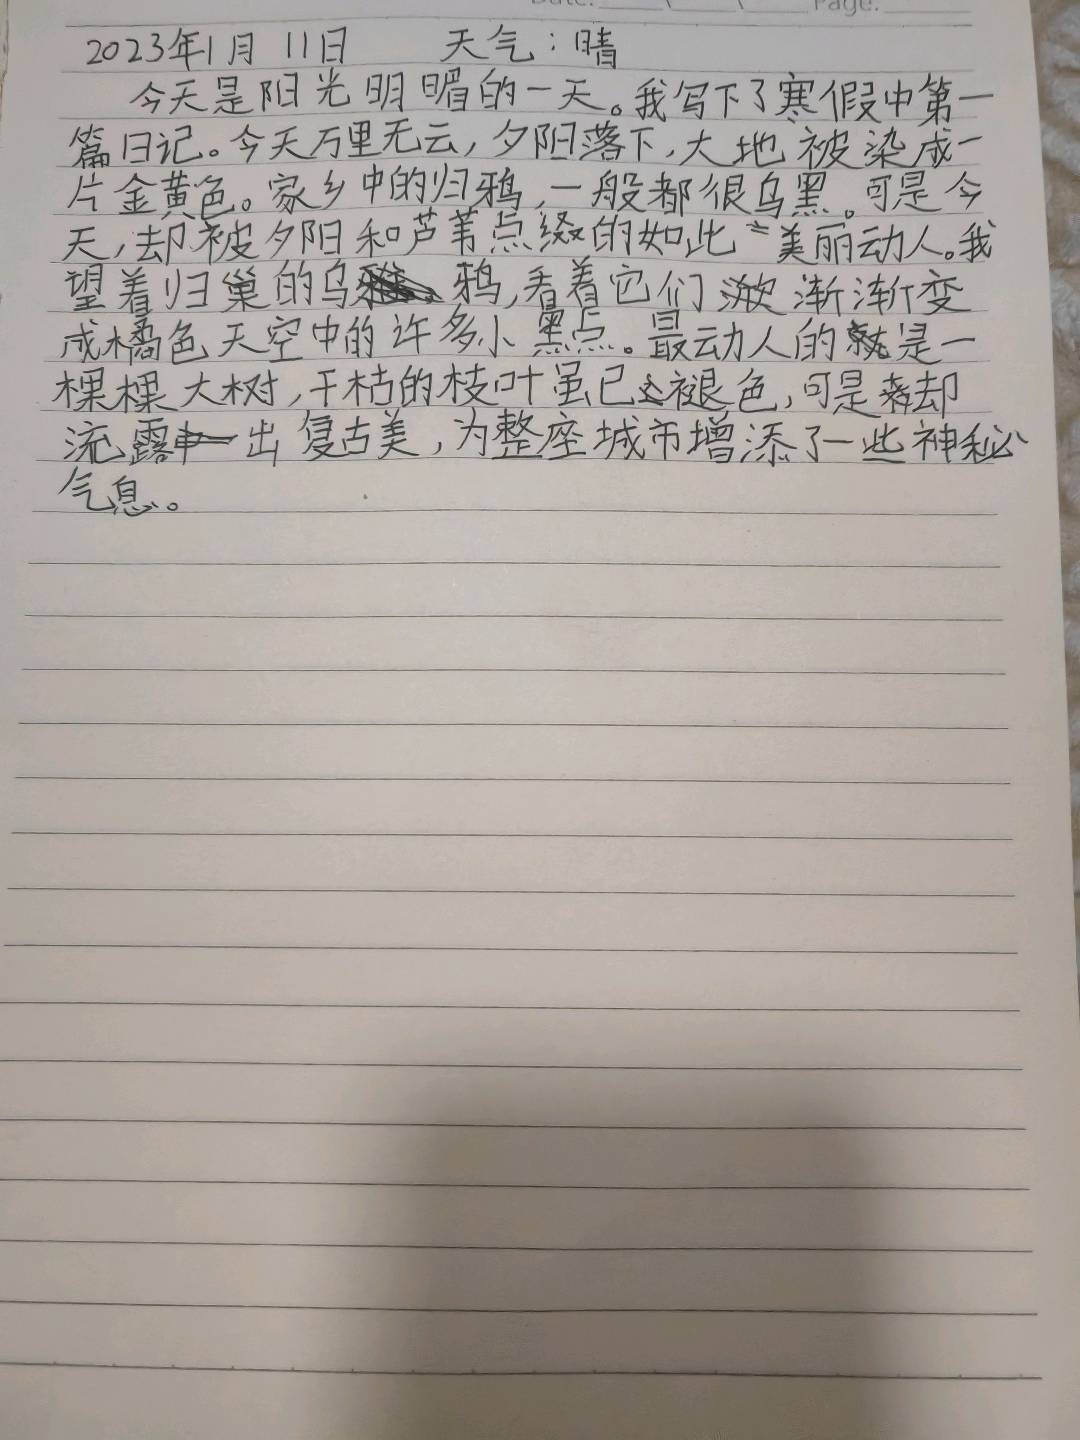 Date: Page:
2023年1月11日 天气：晴
今天是阳光明媚的一天。我写下了寒假中第一
篇日记。今天万里无云，夕阳落下，大地被染成一
片金黄色。家乡中的归鸦，一般都很乌黑。可是今
天，却被夕阳和芦苇点缀的如此美丽动人。我
望着归巢的乌鸦，看着它们渐渐变
成橘色天空中的许多小黑点。最动人的就是一
棵棵大树，干枯的枝叶虽已褪色，可是却
流露出复古美，为整座城市增添了一些神秘
气息。